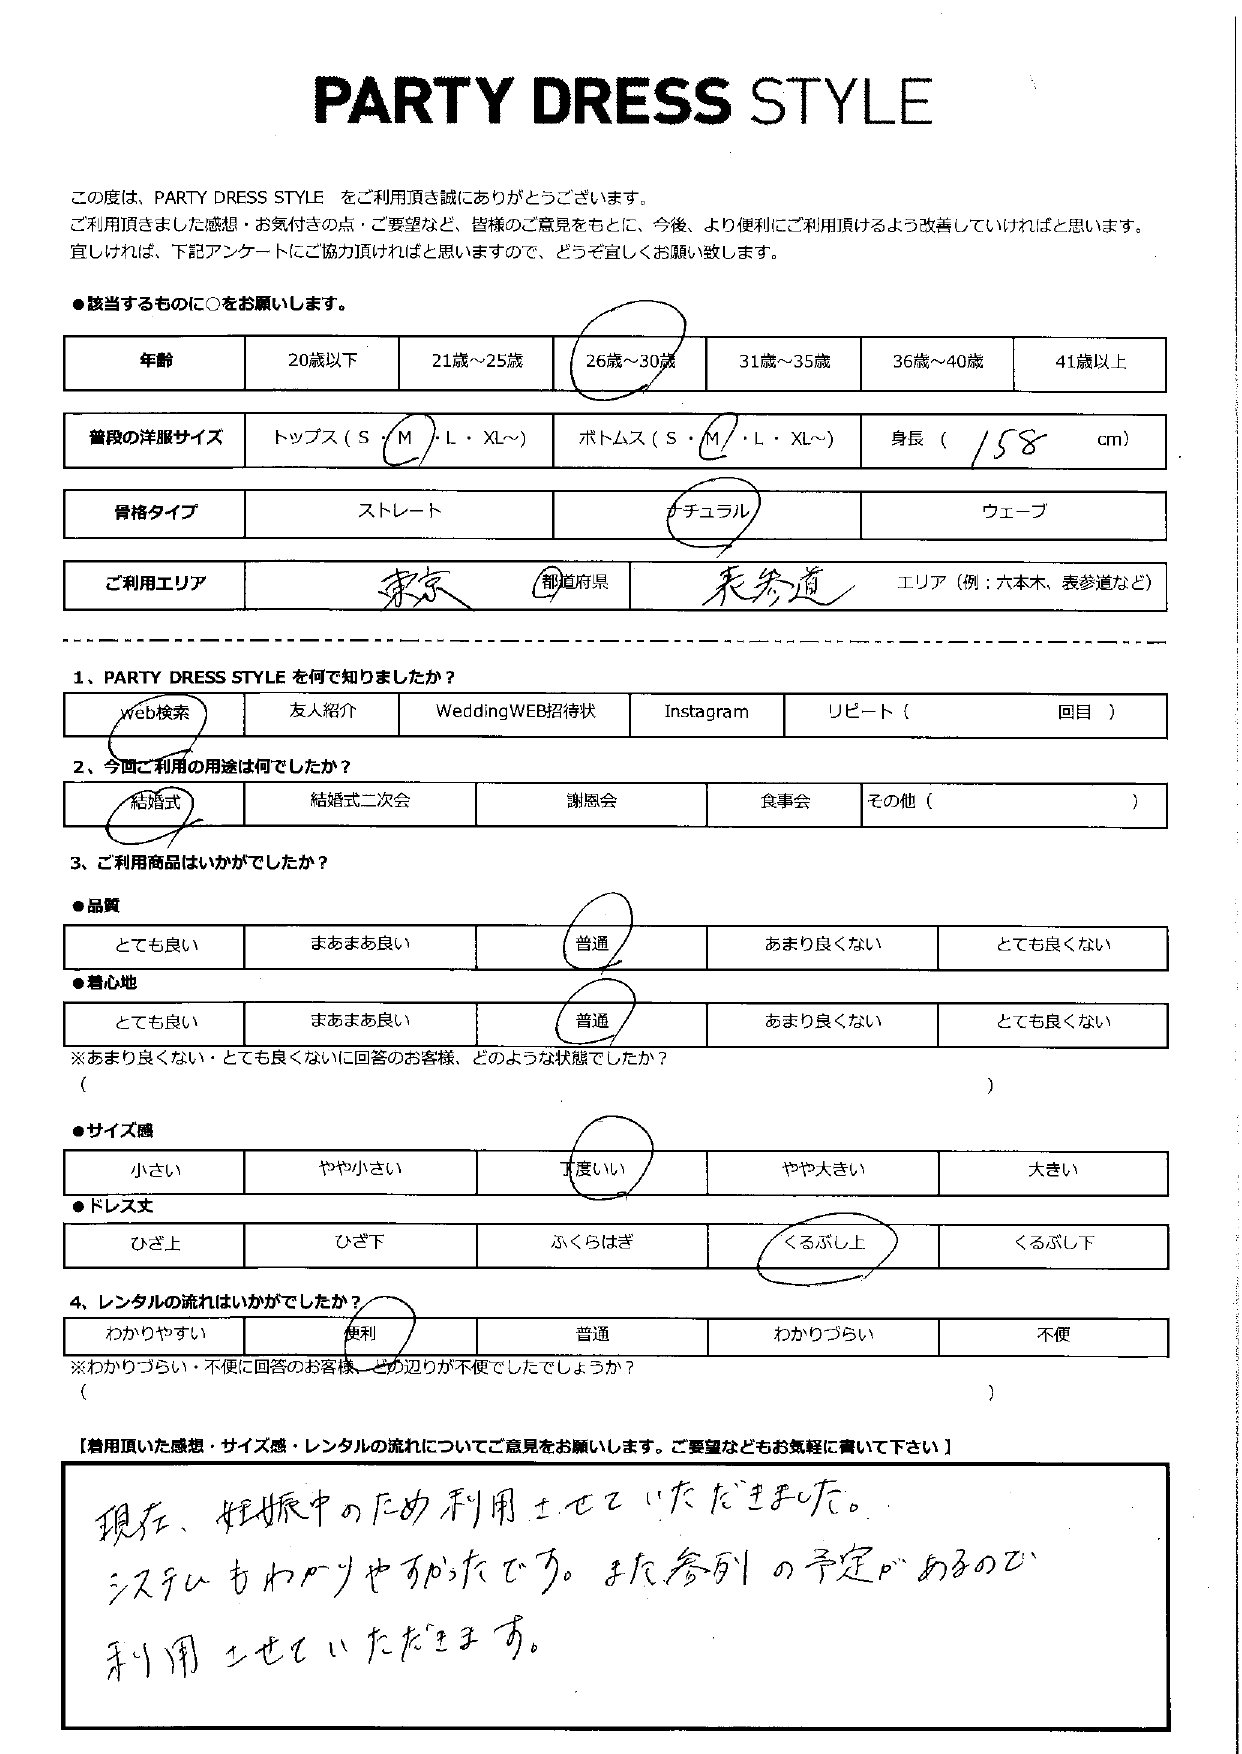 PARTY DRESS STYLE
この度は、PARTY DRESS STYLE をご利用頂き誠にありがとうございます。
ご利用頂きました感想・お気付きの点・ご要望など、皆様のご意見をもとに、今後、より便利にご利用頂けるよう改善していければと思います。
宜しければ、下記アンケートにご協力頂ければと思いますので、どうぞ宜しくお願い致します。
●該当するものに○をお願いします。
年齢 20歳以下 21歳～25歳 26歳～30歳 31歳～35歳 36歳～40歳 41歳以上
普段の洋服サイズ トップス ( S ・ M ・ L ・ XL～) ボトムス ( S ・ M ・ L ・ XL～) 身長 ( 158 cm)
骨格タイプ ストレート ナチュラル ウェーブ
ご利用エリア 東京 都道府県 表参道 エリア（例：六本木、表参道など）
1、PARTY DRESS STYLE を何で知りましたか？
Web検索 友人紹介 WeddingWEB招待状 Instagram リピート（ 回目 ）
2、今回ご利用の用途は何でしたか？
結婚式 結婚式二次会 謝恩会 食事会 その他（ ）
3、ご利用商品はいかがでしたか？
●品質
とても良い まあまあ良い 普通 あまり良くない とても良くない
●着心地
とても良い まあまあ良い 普通 あまり良くない とても良くない
※あまり良くない・とても良くないに回答のお客様、どのような状態でしたか？
（ ）
●サイズ感
小さい やや小さい 丁度いい やや大きい 大きい
●ドレス丈
ひざ上 ひざ下 ふくらはぎ くるぶし上 くるぶし下
4、レンタルの流れはいかがでしたか？
わかりやすい 便利 普通 わかりづらい 不便
※わかりづらい・不便に回答のお客様、どの辺りが不便でしたでしょうか？
（ ）
【着用頂いた感想・サイズ感・レンタルの流れについてご意見をお願いします。ご要望などもお気軽に書いて下さい】
現在、妊娠中のため利用させていただきました。
システムもわかりやすかったです。また参列の予定があるので
利用させていただきます。